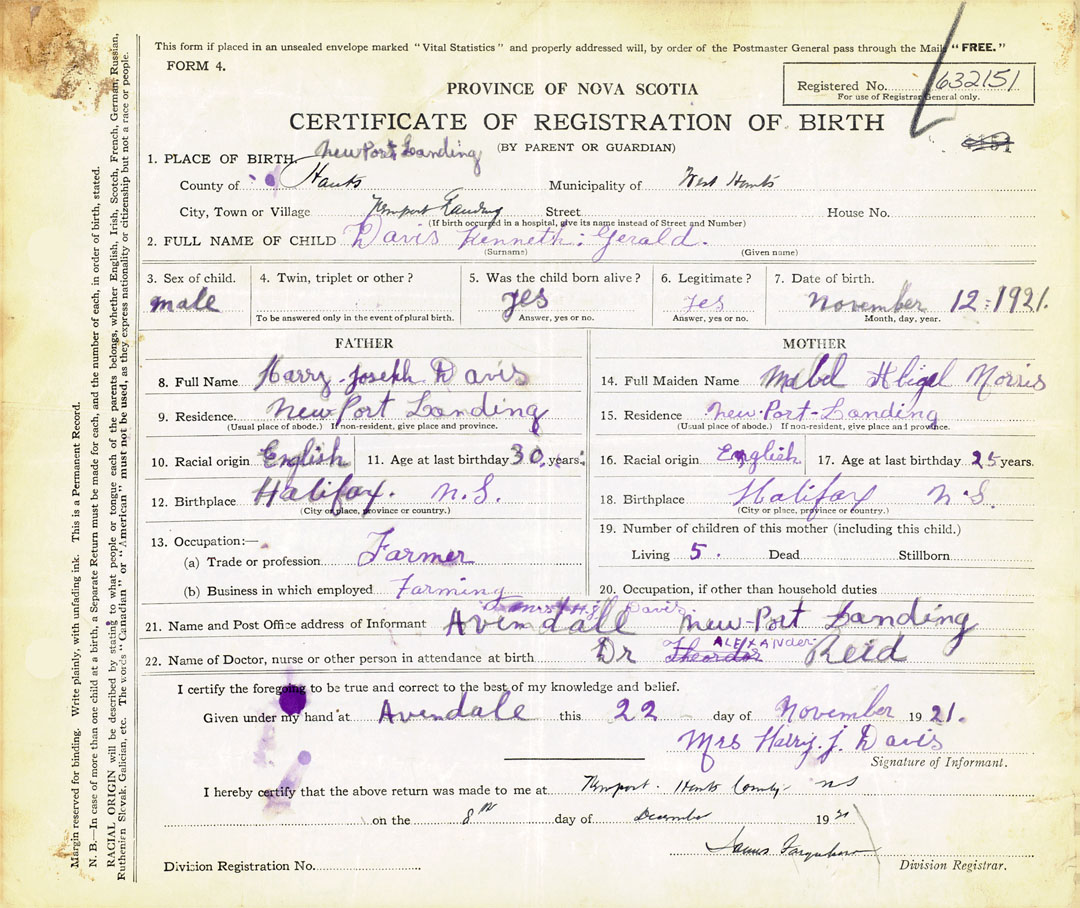 This form if placed in an unsealed envelope marked "Vital Statistics" and properly addressed will, by order of the Postmaster General pass through the Mails "FREE."
FORM 4.
Registered No. 632151
For use of Registrar General only.
PROVINCE OF NOVA SCOTIA
CERTIFICATE OF REGISTRATION OF BIRTH
(BY PARENT OR GUARDIAN)
1. PLACE OF BIRTH New Port Landing
County of Hants Municipality of West Hants
City, Town or Village Newport Landing Street House No.
(If birth occurred in a hospital, give its name instead of Street and Number)
2. FULL NAME OF CHILD Davis Kenneth: Gerald.
(Surname) (Given name)
3. Sex of child. 4. Twin, triplet or other? 5. Was the child born alive? 6. Legitimate? 7. Date of birth.
male yes yes November 12:1921.
To be answered only in the event of plural birth. Answer, yes or no. Answer, yes or no. Month, day, year.
FATHER
8. Full Name Harry Joseph Davis
9. Residence. New Port Landing
(Usual place of abode.) If non-resident, give place and province.
10. Racial origin English 11. Age at last birthday 30. years.
12. Birthplace Halifax. N.S.
(City or place, province or country.)
13. Occupation:—
(a) Trade or profession Farmer
(b) Business in which employed Farming
MOTHER
14. Full Maiden Name Mabel Abigel Morris
15. Residence New-Port-Landing
(Usual place of abode.) If non-resident, give place and province.
16. Racial origin English 17. Age at last birthday 25 years.
18. Birthplace Halifax N.S.
(City or place, province or country.)
19. Number of children of this mother (including this child.)
Living 5. Dead Stillborn
20. Occupation, if other than household duties
Mrs H.J. Davis
21. Name and Post Office address of Informant Avendale New-Port Landing
22. Name of Doctor, nurse or other person in attendance at birth Dr Theordor ALEXANDER Reid
I certify the foregoing to be true and correct to the best of my knowledge and belief.
Given under my hand at Avendale this 22 day of November 1921.
Mrs Harry. J. Davis
Signature of Informant.
I hereby certify that the above return was made to me at Newport. Hants County. NS
on the 8th day of December 1921
James Farquhar
Division Registration No. Division Registrar.
Margin reserved for binding. Write plainly, with unfading ink. This is a Permanent Record.
N. B.—In case of more than one child at a birth, a Separate Return must be made for each, and the number of each, in order of birth, stated.
RACIAL ORIGIN will be described by stating to what people or tongue each of the parents belongs, whether English, Irish, Scotch, French, German, Russian,
Ruthenian Slovak, Galician, etc. The words "Canadian" or "American" must not be used, as they express nationality or citizenship but not a race or people.